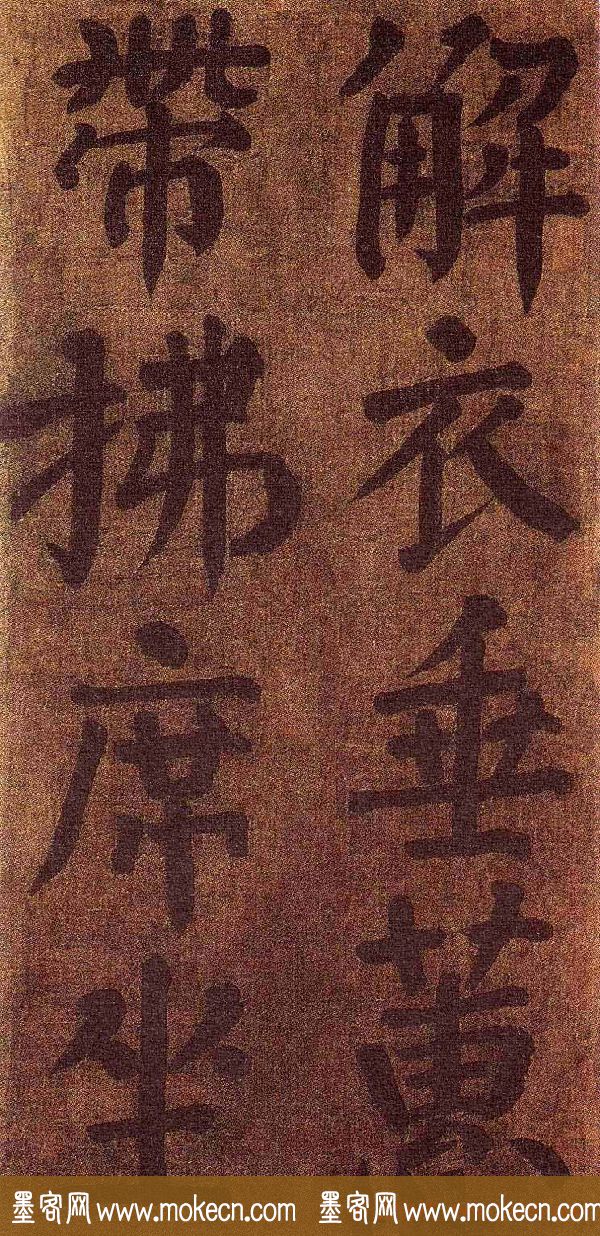 解衣垂蕙
帶拂席坐
墨客网 www.mokecn.com 墨客网 www.mokecn.com